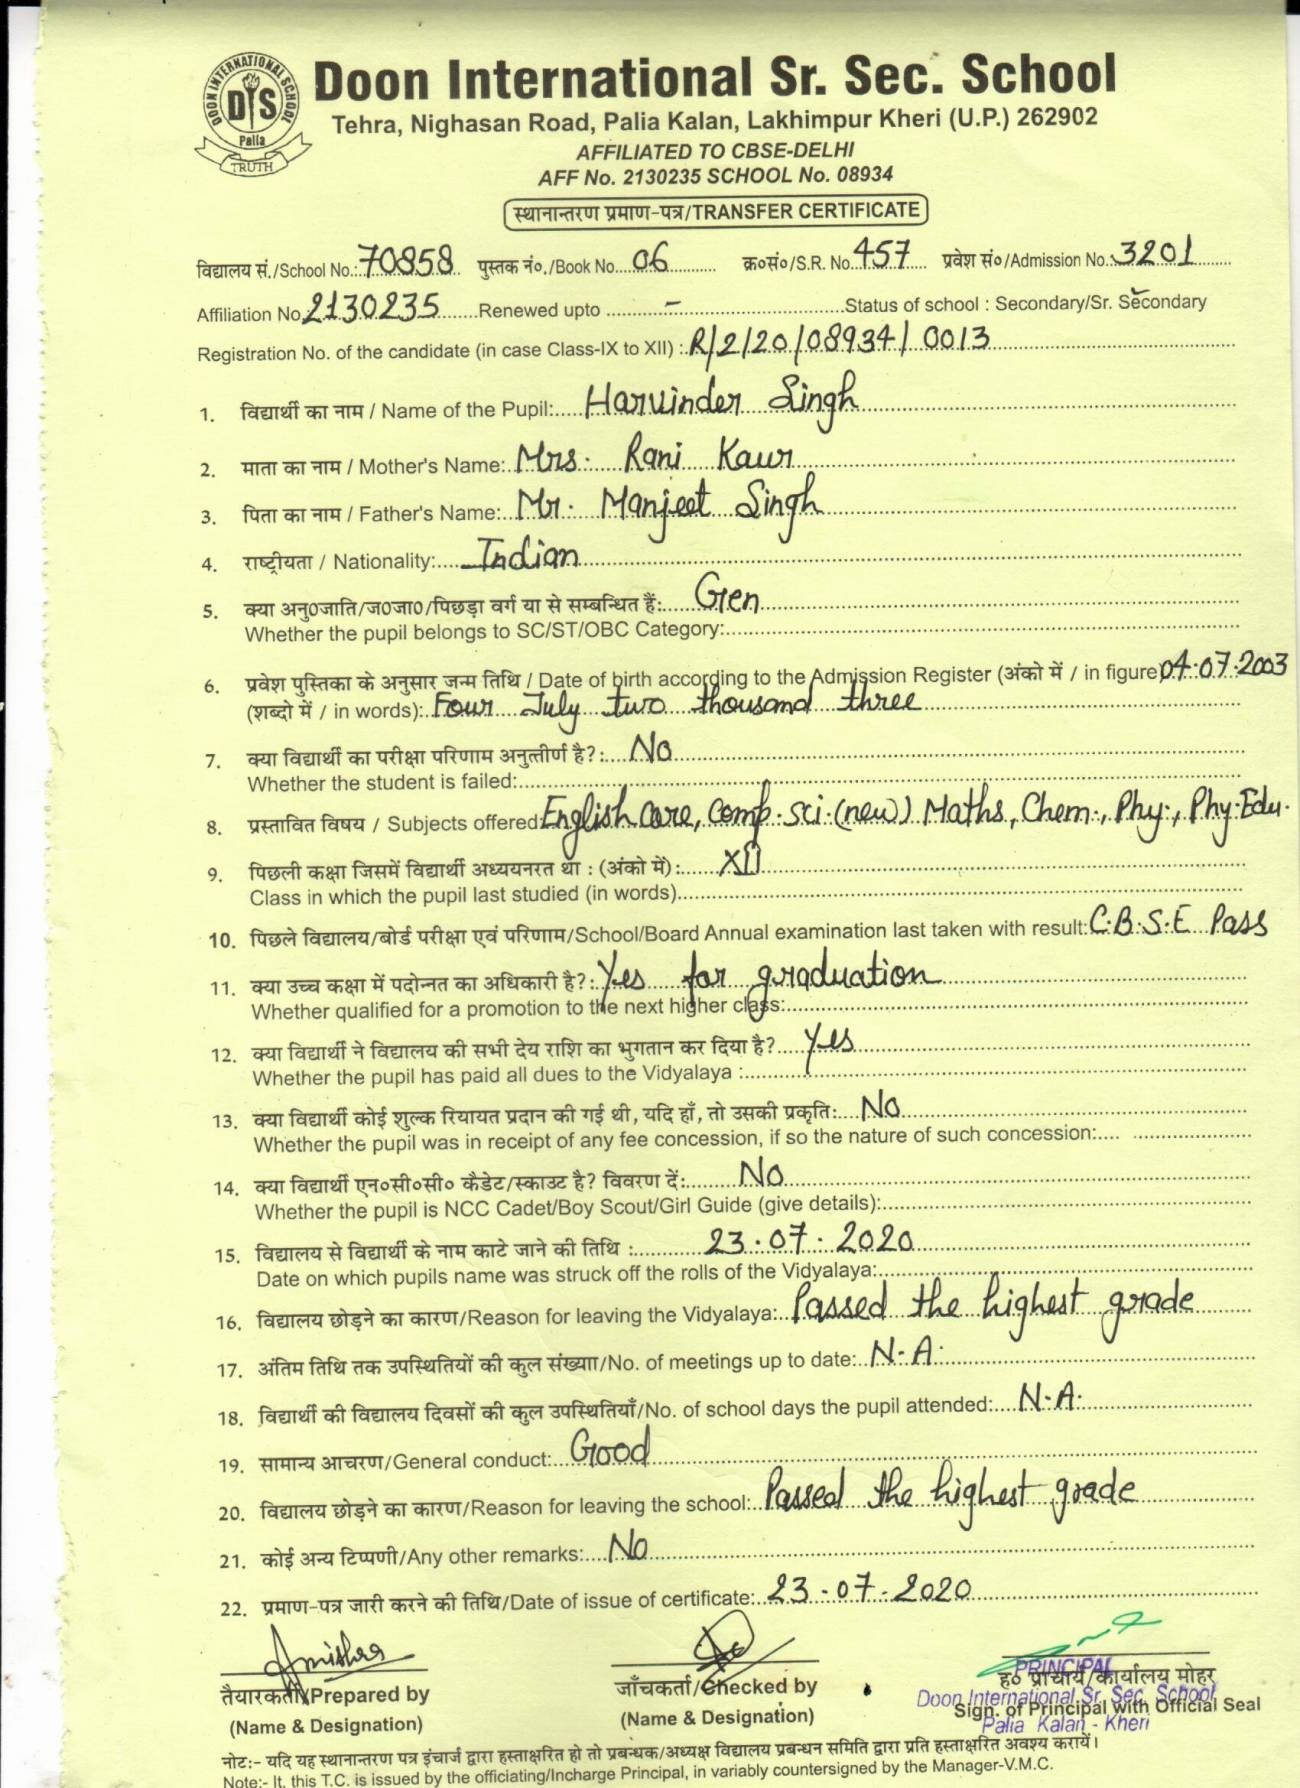 DOON INTERNATIONAL SCHOOL
DIS
Palia
TRUTH
Doon International Sr. Sec. School
Tehra, Nighasan Road, Palia Kalan, Lakhimpur Kheri (U.P.) 262902
AFFILIATED TO CBSE-DELHI
AFF No. 2130235 SCHOOL No. 08934
स्थानान्तरण प्रमाण-पत्र/TRANSFER CERTIFICATE
विद्यालय सं./School No.: 70858 पुस्तक नं०./Book No. 06 क्र०सं०/S.R. No. 457 प्रवेश सं०/Admission No. 3201
Affiliation No. 2130235 Renewed upto - Status of school : Secondary/Sr. Secondary
Registration No. of the candidate (in case Class-IX to XII) : R/2/20/08934/0013
1. विद्यार्थी का नाम / Name of the Pupil: Harvinder Singh
2. माता का नाम / Mother's Name: Mrs. Rani Kaur
3. पिता का नाम / Father's Name: Mr. Manjeet Singh
4. राष्ट्रीयता / Nationality: Indian
5. क्या अनु०जाति/ज०जा०/पिछड़ा वर्ग या से सम्बन्धित हैं: Gen
Whether the pupil belongs to SC/ST/OBC Category:
6. प्रवेश पुस्तिका के अनुसार जन्म तिथि / Date of birth according to the Admission Register (अंको में / in figure) 04.07.2003
(शब्दो में / in words): Four July two thousand three
7. क्या विद्यार्थी का परीक्षा परिणाम अनुत्तीर्ण है?: No
Whether the student is failed:
8. प्रस्तावित विषय / Subjects offered: English core, comp. sci. (new) Maths, Chem., Phy., Phy. Edu.
9. पिछली कक्षा जिसमें विद्यार्थी अध्ययनरत था : (अंको में): XII
Class in which the pupil last studied (in words)
10. पिछले विद्यालय/बोर्ड परीक्षा एवं परिणाम/School/Board Annual examination last taken with result: C.B.S.E Pass
11. क्या उच्च कक्षा में पदोन्नत का अधिकारी है?: Yes for graduation
Whether qualified for a promotion to the next higher class:
12. क्या विद्यार्थी ने विद्यालय की सभी देय राशि का भुगतान कर दिया है? Yes
Whether the pupil has paid all dues to the Vidyalaya :
13. क्या विद्यार्थी कोई शुल्क रियायत प्रदान की गई थी, यदि हाँ, तो उसकी प्रकृति: No
Whether the pupil was in receipt of any fee concession, if so the nature of such concession:
14. क्या विद्यार्थी एन०सी०सी० कैडेट/स्काउट है? विवरण दें: No
Whether the pupil is NCC Cadet/Boy Scout/Girl Guide (give details):
15. विद्यालय से विद्यार्थी के नाम काटे जाने की तिथि : 23.07.2020
Date on which pupils name was struck off the rolls of the Vidyalaya:
16. विद्यालय छोड़ने का कारण/Reason for leaving the Vidyalaya: Passed the highest grade
17. अंतिम तिथि तक उपस्थितियों की कुल संख्या/No. of meetings up to date: N.A.
18. विद्यार्थी की विद्यालय दिवसों की कुल उपस्थितियाँ/No. of school days the pupil attended: N.A.
19. सामान्य आचरण/General conduct: Good
20. विद्यालय छोड़ने का कारण/Reason for leaving the school: Passed the highest grade
21. कोई अन्य टिप्पणी/Any other remarks: No
22. प्रमाण-पत्र जारी करने की तिथि/Date of issue of certificate: 23.07.2020
तैयारकर्ता/Prepared by
(Name & Designation)
जाँचकर्ता/Checked by
(Name & Designation)
PRINCIPAL
Doon International Sr. Sec. School
Palia Kalan - Kheri
ह० प्राचार्य/कार्यालय मोहर
Sign. of Principal with Official Seal
नोट:- यदि यह स्थानान्तरण पत्र इंचार्ज द्वारा हस्ताक्षरित हो तो प्रबन्धक/अध्यक्ष विद्यालय प्रबन्धन समिति द्वारा प्रति हस्ताक्षरित अवश्य करायें।
Note:- It, this T.C. is issued by the officiating/Incharge Principal, in variably countersigned by the Manager-V.M.C.